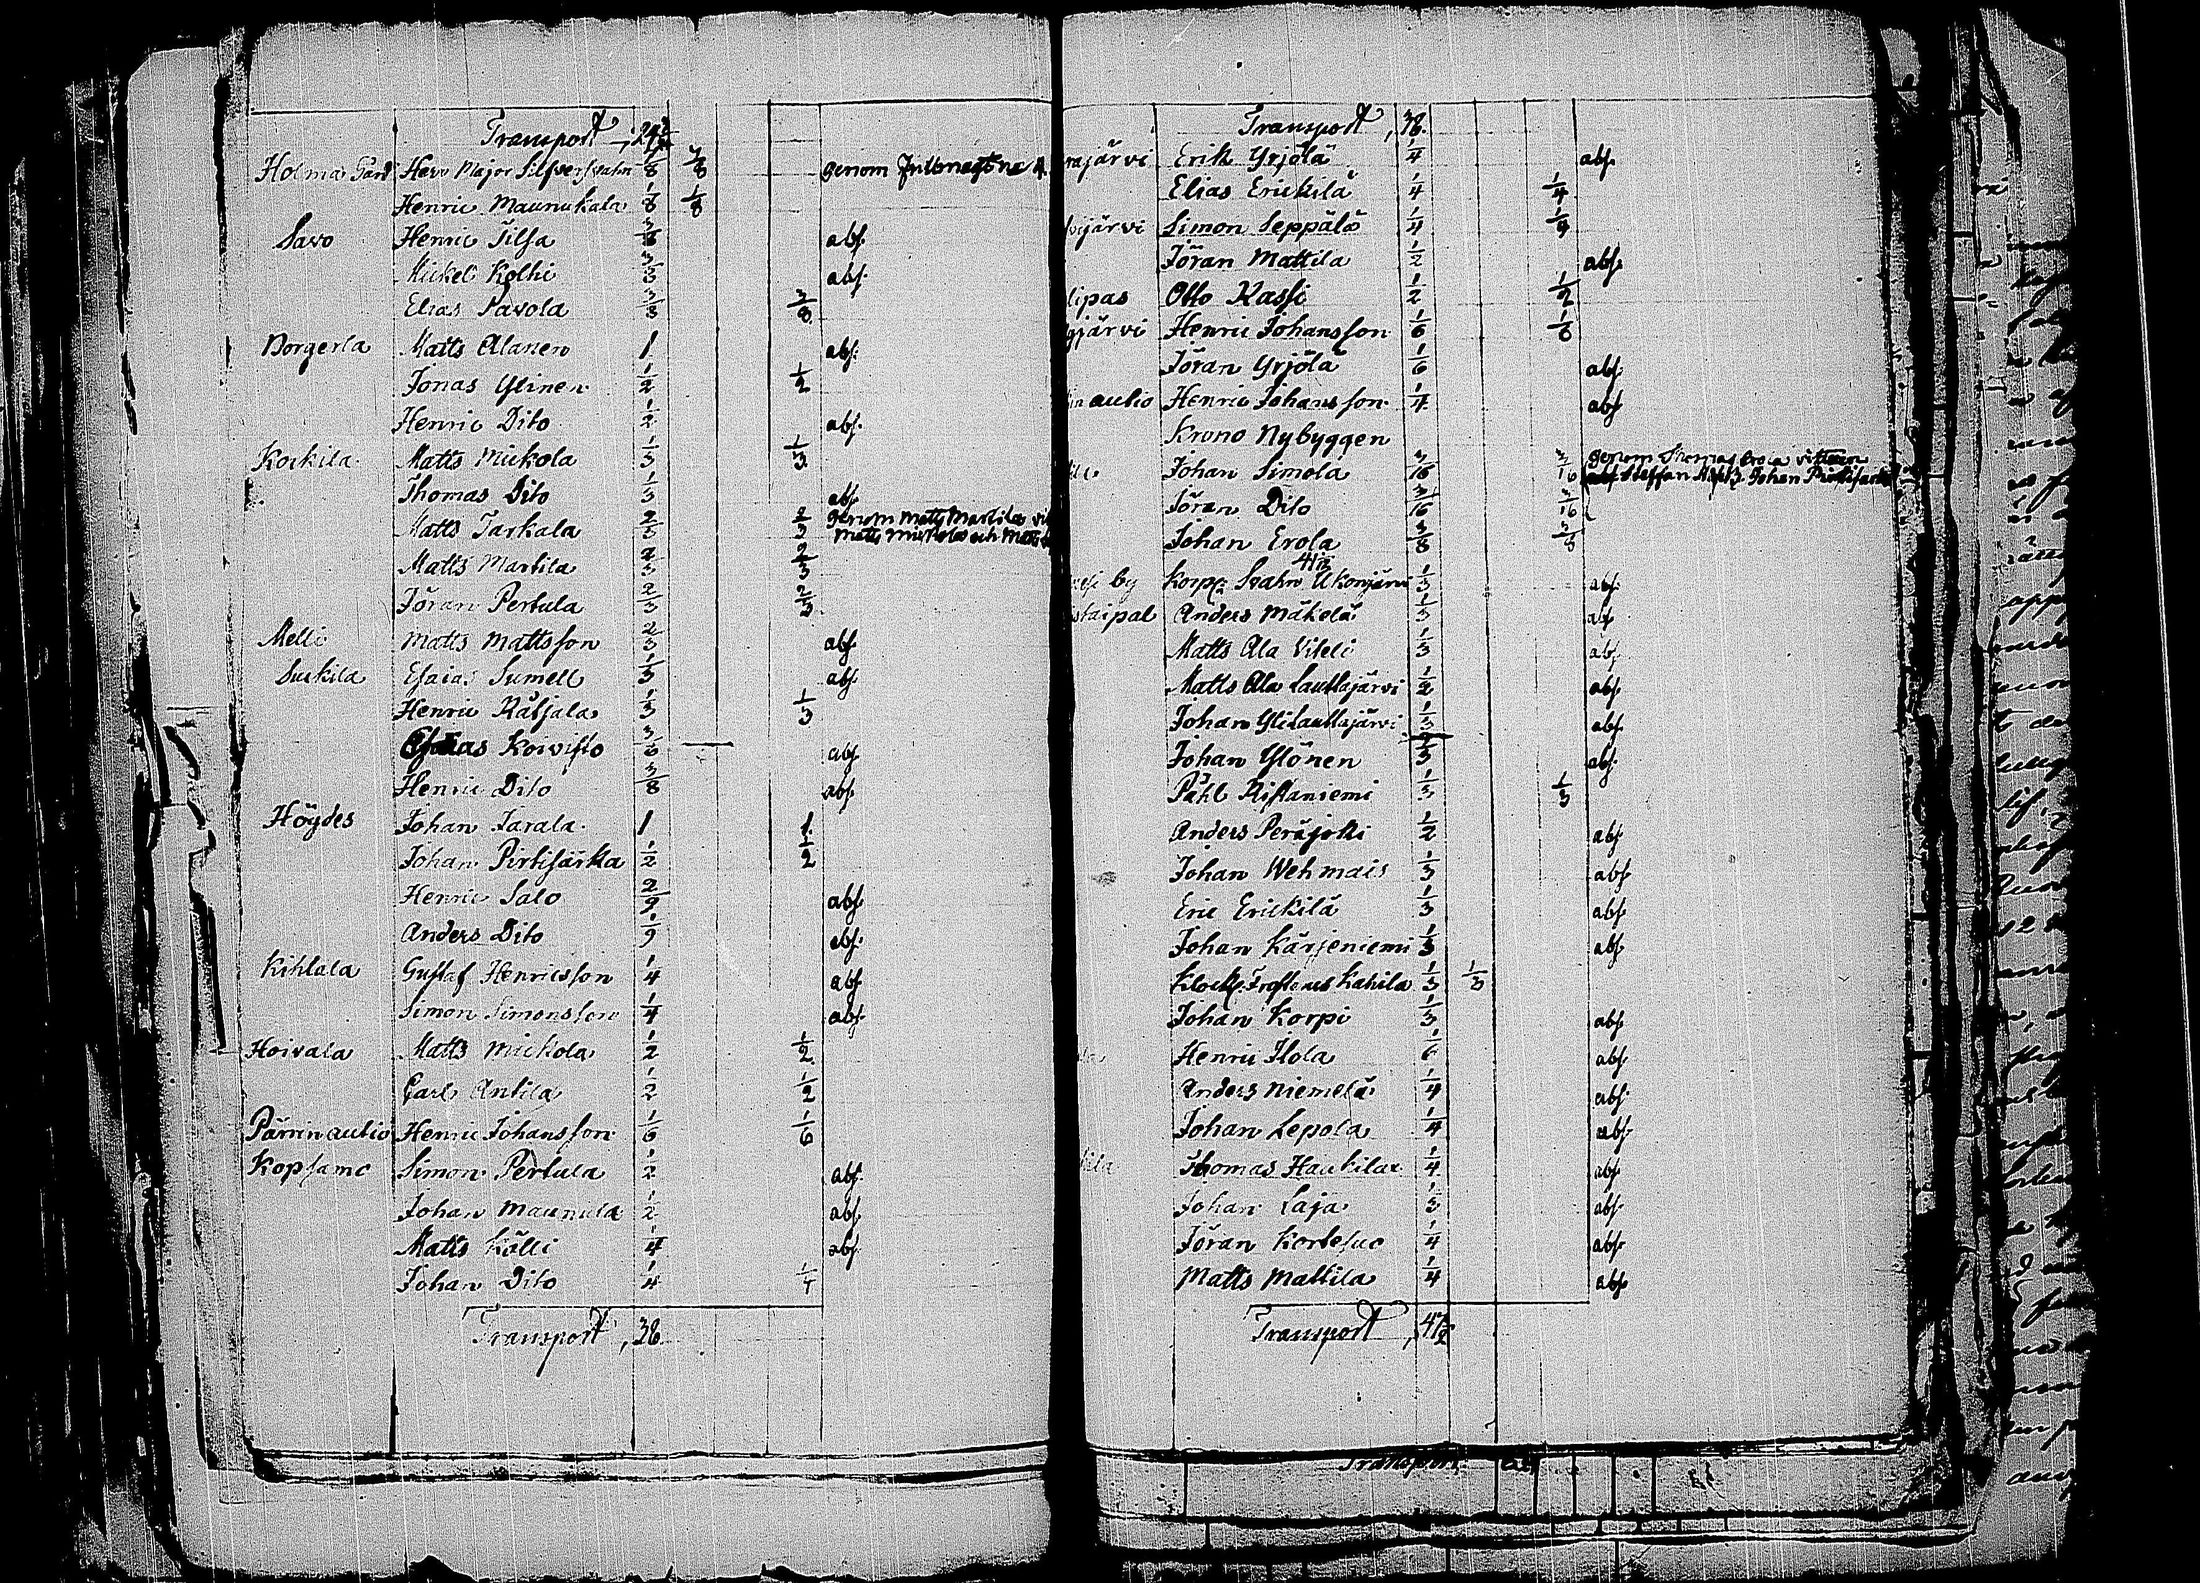 Transport
Holma Gård Herr Major Silfversvahn 7/8 7/8 genom
Henric Maunukala 1/8 1/8
Savo Henric Tilsa 3/8 abs.
Mickel Kolhi 3/8 abs.
Elias Pavola 3/8 3/8
Borgerla Matts Alanen 1 abs.
Jonas Ylinen 1/2 1/2
Henric Dito 1/2 abs.
Korkila Matts Mickola 1/3 1/3
Thomas Dito 1/3 abs.
Matts Tarkala 2/3 2/3 genom Matts Martila
Matts Mickola och Matts
Matts Martila 2/3 2/3
Jöran Pertula 2/3 2/3
Melli Matts Mattsson 2/3 abs.
Suckila Esaias Sumell 1/3 abs.
Henric Rätsala 1/3 1/3
Esaias Koivisto abs.
Henric Dito 3/8 abs.
Höydes Johan Jarala 1 1
Johan Pirtisärka 1/2 1/2
Henric Salo 2/9 abs.
Anders Dito 1/9 abs.
Kihlala Gustaf Henricsson 1/4 abs.
Simon Simonsson 1/4 abs.
Hoivala Matts Mickola 1/2 1/2
Carl Antila 1/2 1/2
Pärrinautio Henric Johansson 1/6 1/6
Kopsamo Simon Pertula 1/2 abs.
Johan Maunula 1/2 abs.
Matts Källi 1/4 abs.
Johan Dito 1/4 1/4
Transport 38.
Transport 38.
rajärvi Erik Yrjölä 1/4 abs.
Elias Erickilä 1/4 1/4
järvi Simon Seppälä 1/4 1/4
Jöran Mattila 1/2 abs.
lipas Otto Kassi 1/2 1/2
järvi Henric Johansson 1/6 1/6
Jöran Yrjölä 1/6 abs.
autio Henric Johansson 1/4 abs.
Krono Nybyggen
Johan Simola 3/16 3/16 genom Thomas Erola
Steffan Johan
Jöran Dito 3/16 3/16
Johan Erola 3/8 3/8
by Korpr Stahn Ukonjärvi 1/3 abs.
taipal Anders Mäkelä 1/3 abs.
Matts Ala Viteli 1/3 abs.
Matts Ala Lauttajärvi 1/2 abs.
Johan Ylilauttajärvi abs.
Johan Ylönen abs.
Påhl Ristaniemi 1/3 1/3
Anders Peräjoki 1/2 abs.
Johan Wehmais 1/3 abs.
Eric Erickilä 1/3 abs.
Johan Kärjeniemi 1/3 abs.
Klock. Frosterus Kahila 1/3 1/3
Johan Korpi 1/3 abs.
Henric Ilola 1/6 abs.
Anders Niemelä 1/4 abs.
Johan Lepola 1/4 abs.
Thomas Haukila 1/4 abs.
Johan Laja 1/3 abs.
Jöran Kortesuo 1/4 abs.
Matts Mattila 1/4 abs.
Transport 47 1/2
Transport